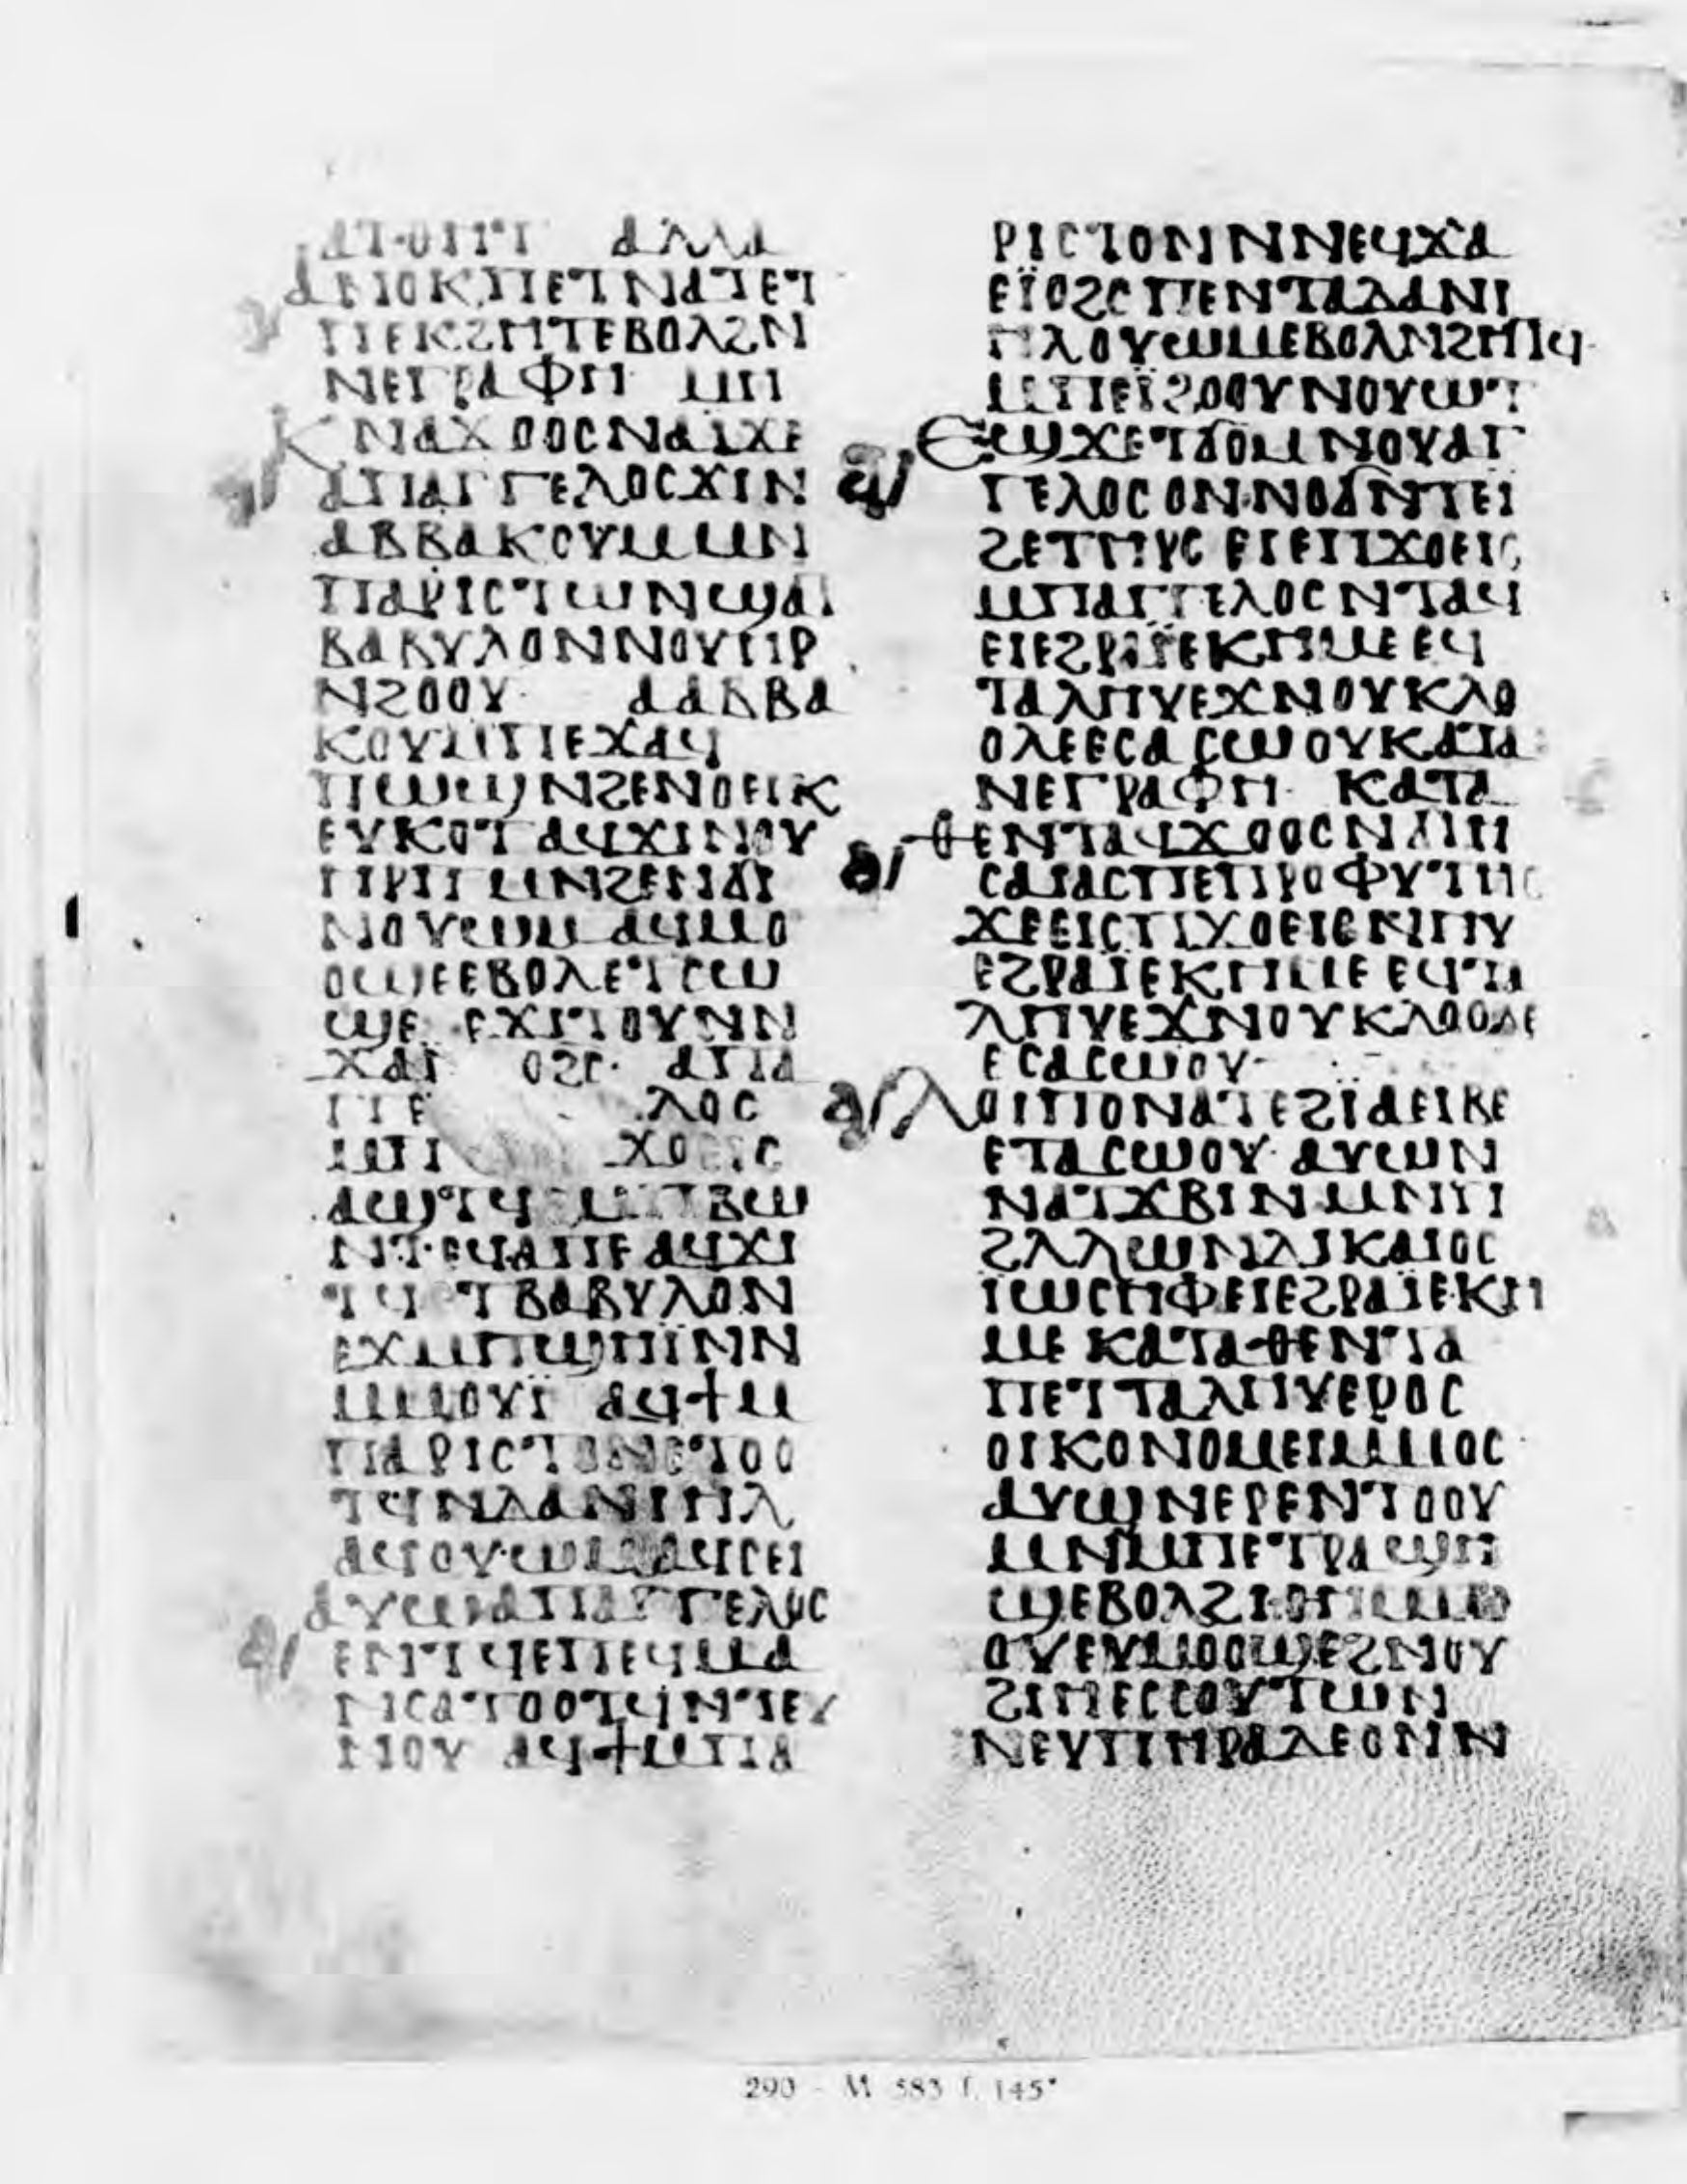 ⲁⲗⲗⲁ
ⲁⲛⲟⲕⲡⲉⲧⲛⲁⲧⲉⲧ
ⲡⲉⲕϩⲏⲧⲉⲃⲟⲗϩⲛ
ⲛⲉⲅⲣⲁⲫⲏ· ⲙⲏ
ⲕⲛⲁϫⲟⲟⲥⲛⲁⲓϫⲉ
ⲁⲡⲁⲅⲅⲉⲗⲟⲥϫⲓⲛ
ⲁⲃⲃⲁⲕⲟⲩⲙⲙⲛ
ⲡⲁⲣⲓⲥⲧⲱⲛϣⲁ
ⲃⲁⲃⲩⲗⲟⲛⲛⲟⲩⲏⲣ
ⲛϩⲟⲟⲩ· ⲁⲁⲃⲃⲁ
ⲕⲟⲩⲙⲡⲉϫⲁϥ
ⲡⲱϣⲛϩⲉⲛⲟⲉⲓⲕ
ⲉⲩⲕⲟⲧⲁϥϫⲓⲛⲟⲩ
ⲛⲟⲩⲱⲙⲁϥⲙⲟ
ⲟϣⲉⲉⲃⲟⲗⲉⲧⲥⲱ
ϣⲉ ⲉϫⲓⲧⲟⲩⲛⲛ
ϫⲁⲓ ⲟϩⲥ· ⲁⲡⲁ
ⲅⲅⲉ ⲗⲟⲥ
ⲙⲡ ϫⲟⲉⲓⲥ
ⲛⲧⲉϥⲁⲡⲉⲁϥϫⲓ
ⲧϥ ⲧⲃⲁⲃⲩⲗⲟⲛ
ⲉϫⲙⲡϣⲏⲓ̈ⲛⲛ
ⲙⲙⲟⲩⲓ̈ ⲁϥϯⲙ
ⲡⲁⲣⲓⲥⲧⲟⲛⲉⲧⲟⲟ
ⲧϥⲛⲇⲁⲛⲓⲏⲗ
ⲁϥⲟⲩⲱⲙⲁϥⲥⲉⲓ
ⲁⲩⲱⲁⲡⲁⲅⲅⲉⲗⲟⲥ
ⲉⲛⲧϥⲉⲡⲉϥⲙⲁ
ⲛⲥⲁⲧⲟⲟⲧϥⲛⲧⲉⲩ
ⲛⲟⲩ ⲁϥϯⲙⲡⲁ
ⲣⲓⲥⲧⲟⲛⲛⲛⲉϥϫⲁ
ⲉⲓ̈ⲟϩⲥ ⲡⲉⲛⲧⲁⲇⲁⲛⲓ
ⲏⲗⲟⲩⲱⲙⲉⲃⲟⲗⲛϩⲏⲧϥ·
ⲙⲡⲉⲓ̈ϩⲟⲟⲩⲛⲟⲩⲱⲧ
ⲉϣϫⲉⲧϭⲟⲙⲛⲟⲩⲁⲅ
ⲅⲉⲗⲟⲥ ⲟⲛⲛⲟϭⲛⲧⲉⲓ
ϩⲉⲧⲏⲣⲥ ⲉⲓⲉⲡϫⲟⲉⲓⲥ
ⲙⲡⲁⲅⲅⲉⲗⲟⲥ ⲛⲧⲁϥ
ⲉⲓⲉϩⲣⲁⲓ̈ⲉⲕⲏⲙⲉ ⲉϥ
ⲧⲁⲗⲏⲩⲉϫⲛⲟⲩⲕⲗⲟ
ⲟⲗⲉⲉⲥⲁⲥⲱⲟⲩⲕⲁⲧⲁ
ⲛⲉⲅⲣⲁⲫⲏ· ⲕⲁⲧⲁ
ⲑⲉⲛⲧⲁϥϫⲟⲟⲥⲛϭⲓⲏ
ⲥⲁⲓⲁⲥⲡⲉⲡⲣⲟⲫⲩⲧⲏⲥ
ϫⲉⲉⲓⲥⲡϫⲟⲉⲓⲥⲛⲏⲩ
ⲉϩⲣⲁⲓ̈ⲉⲕⲏⲙⲉ ⲉϥⲧⲁ
ⲗⲏⲩⲉϫⲛⲟⲩⲕⲗⲟⲟⲗⲉ
ⲉⲥⲁⲥⲱⲟⲩ·
ⲗⲟⲓⲡⲟⲛⲁⲧⲉϩⲓⲁⲉⲓⲃⲉ
ⲉⲧⲁⲥⲱⲟⲩ· ⲁⲩⲱⲛ
ⲛⲁⲧϫⲃⲓⲛ·ⲙⲛⲡ
ϩⲗⲗⲱⲛⲇⲓⲕⲁⲓⲟⲥ
ⲓ̈ⲱⲥⲏⲫⲉⲓⲉϩⲣⲁⲓ̈ⲉⲕⲏ
ⲙⲉ ⲕⲁⲧⲁⲑⲉⲛⲧⲁ
ⲡⲉⲧⲧⲁⲗⲏⲩⲉⲣⲟⲥ
ⲟⲓⲕⲟⲛⲟⲙⲉⲓⲙⲙⲟⲥ
ⲁⲩϣⲛⲉⲣⲉⲛⲧⲟⲟⲩ
ⲙⲛⲙⲡⲉⲧⲣⲁ ϣⲏ
ϣⲉⲃⲟⲗϩⲓⲑⲏⲙⲙⲟ
ⲟⲩⲉⲩⲙⲟⲟϣⲉϩⲛⲟⲩ
ϩⲓⲏⲉⲥⲥⲟⲩⲧⲱⲛ
ⲛⲉⲩⲧⲏⲣⲁⲗⲉⲟⲛⲛ
290 - M 583 f. 145ᵛ